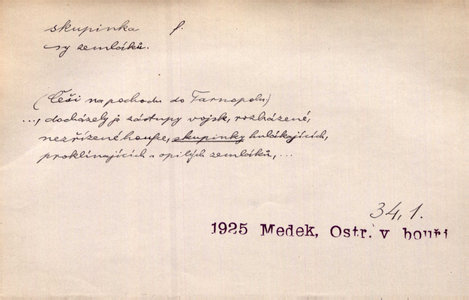 skupinka f.
sy zemláků.
(Češi na pochodu do Tarnopolu)
..., docházely je zástupy vojsk, rozházené,
nezřízené houfce, skupinky hulákajících,
proklínajících a opilých zemláků, ...
34, 1.
1925 Medek, Ostr. v bouři